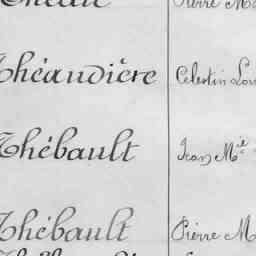 Théaudière Celestin Lou
Thébault Jean Mie
Thébault Pierre M